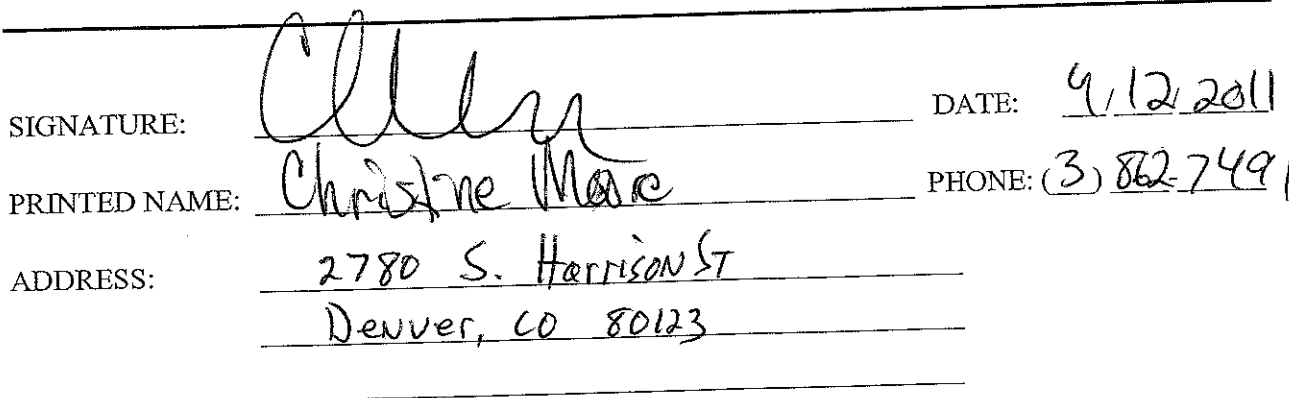 SIGNATURE: DATE: 4/12/2011
PRINTED NAME: Christine PHONE: (3) 862-7491
ADDRESS: 2780 S. Harrison ST
Denver, CO 80123